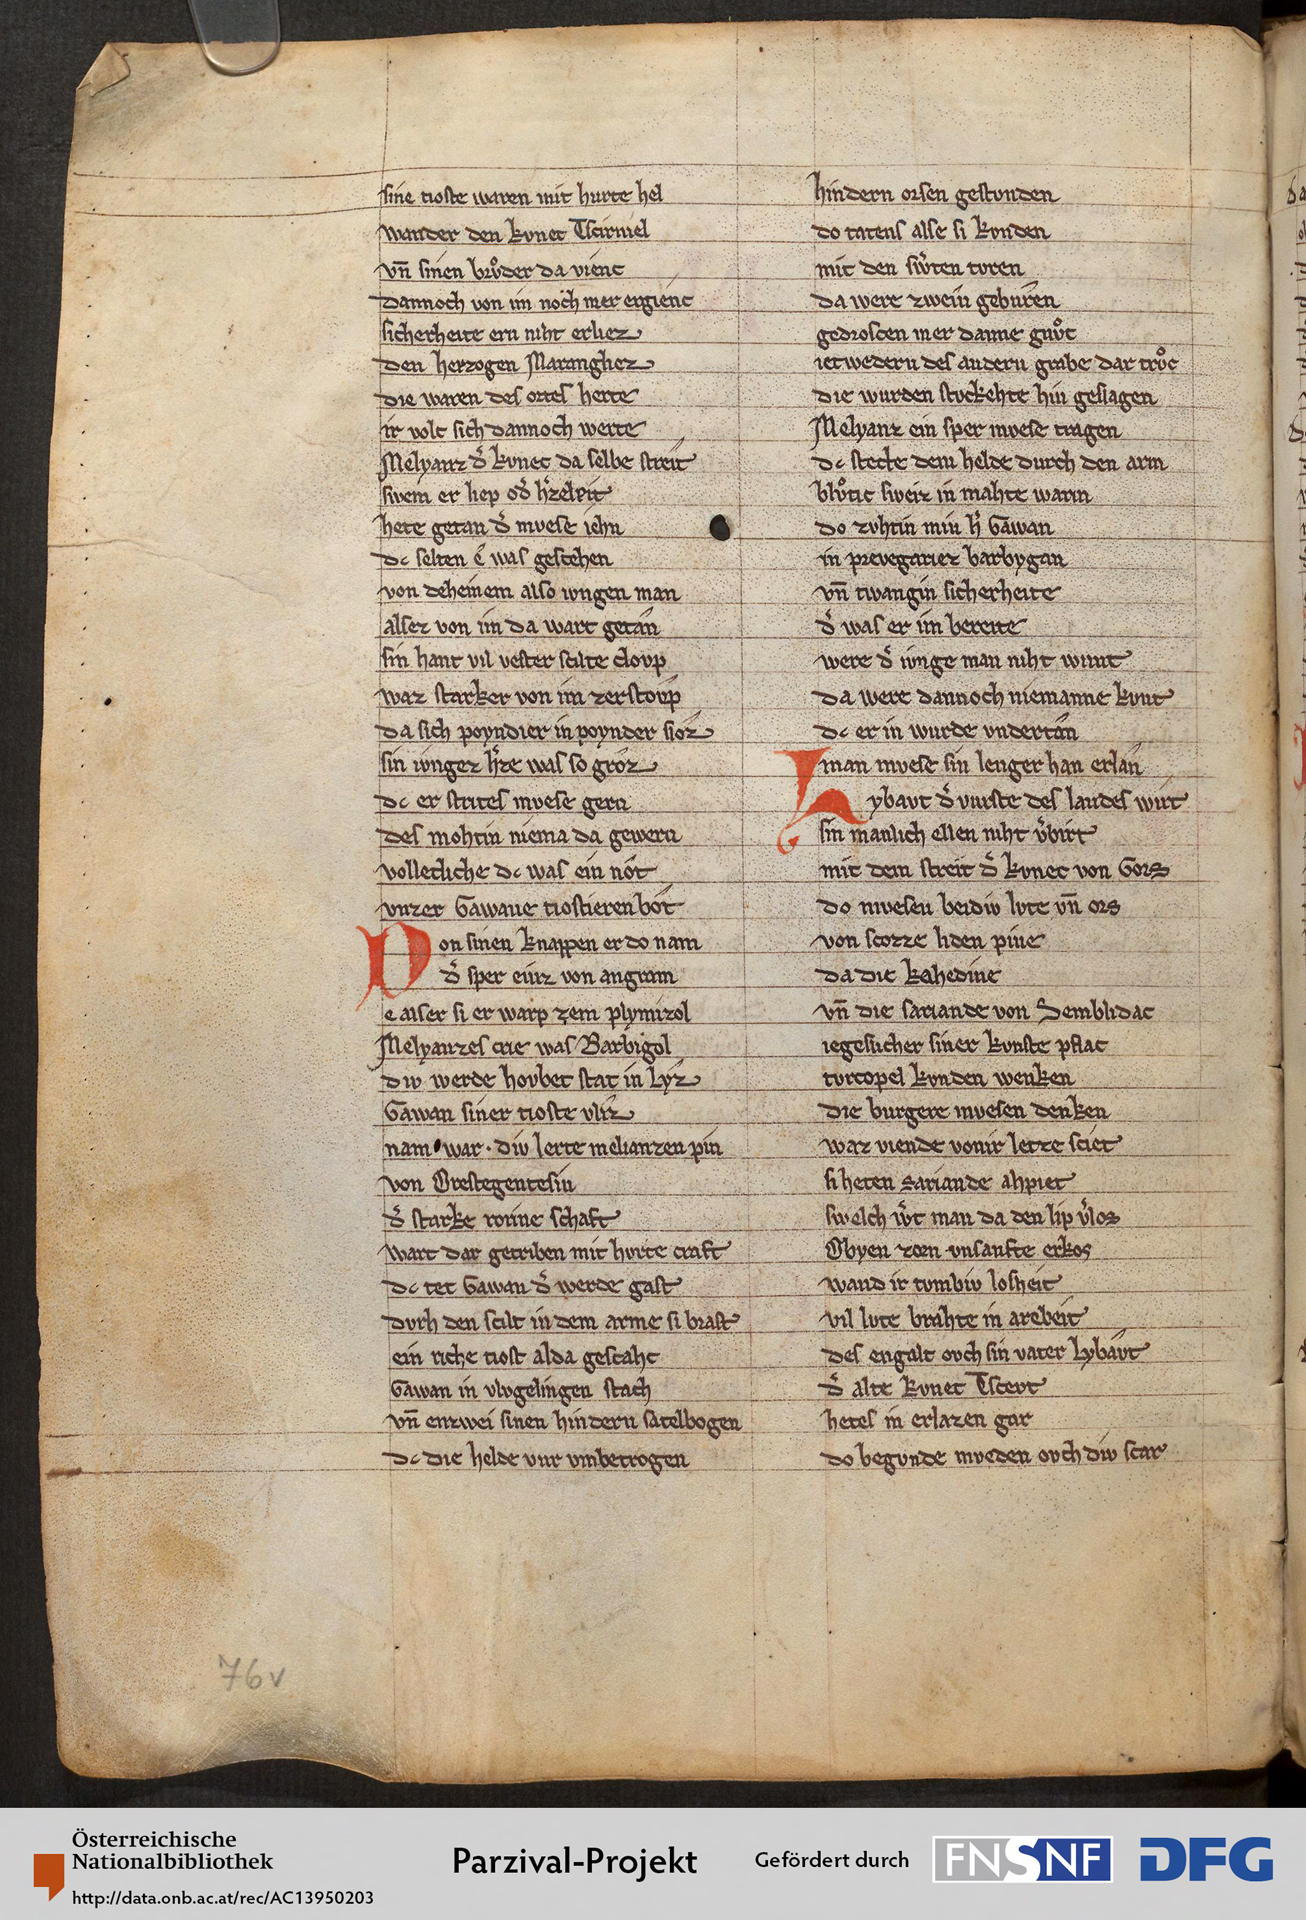 sine tioste waren mit hurte hel
wander den kvnec Tscirniel
vn̄ sinen brvͦder da vienc
dannoch von im noch mer ergienc
sicherheite ern niht erliez
den herzogen Marangliez
die waren des ortes herte
ir volc sich dannoch werte
Melyanz dˀ kvnec da selbe streit
swem er liep odˀ hˀzeleit
hete getan dˀ mvese iehn
dc selten ê was gescehen
von deheinem also ivngen man
alsez von im da wart getân
sin hant vil vester scilte clovp
waz starker von im zerstovp
da sich poyndier in poynder slôz
sin ivngez hˀze was so grôz
dc er strites mvese gern
des mohtin niema da gewern
volleclliche dc was ein nôt
vnzer Gawane tiostieren bôt
Von sinen knappen er do nam
dˀ sper einz von angram
e alser si er warp zem plymizol
Melyanzes crie was Barbigol
div werde hovbet stat in Lyz
Gawan siner tioste vliz
nam war · div lerte melianzen pin
von Orestegentesin
dˀ starke rorine schaft
wart dar getriben mit hvrte craft
dc tet Gawan dˀ werde gast
dvrh den scilt in dem arme si brast
ein riche tiost alda gescahc
Gawan in vlvgelingen stach
vn̄ enzwei sinen hindern satelbogen
dc die helde vur vmbetrogen
hindern orsen gestvnden
do tatens alse si kvnden
mit den swˀten tvren
da were zwein gebûren
gedroscen mer danne gnvͦc
ietwedern des andern grabe dar trvͦc
die wurden stvckehte hin geslagen
Melyanz ein sper mvese tragen
dc stecte dem helde durch den arm
blvͦtic sweiz in mahte warm
do zvhtin min hˀ Gawan
in prevegariez barbygan
vn̄ twangin sicherheite
dˀ was er im bereite
were dˀ ivnge man niht wunt
da were dannoch niemanne kvnt
dc er in wurde vndertân
man mvese sin lenger han erlân
Lybavt dˀ vurste des landes wirt
sin manlich ellen niht vˀbirt
mit dem streit dˀ kvnec von Gors
do mvesen beidiv lvte vn̄ ors
von scozze liden pine
da die kahedine
vn̄ die sariande von Semblidac
iegeslicher siner kvnste pflac
tvrcopel kvnden wenken
die burgere mvesen denken
waz viende vonir letze sciet
si heten sariande ahpiet
swelch wˀt man da den lip vˀlos
Obyen zorn vnsanfte erkos
wand ir tvmbiv losheit
vil lvte brahte in arebeit
des engalt ovch sin vater Lybavt
dˀ alte kvnec Tscovt
hetes in erlazen gar
do begvnde mveden ovch div scar
76v
Österreichische
Nationalbibliothek
http://data.onb.ac.at/rec/AC13950203
Parzival-Projekt
Gefördert durch
FNSNF
DFG